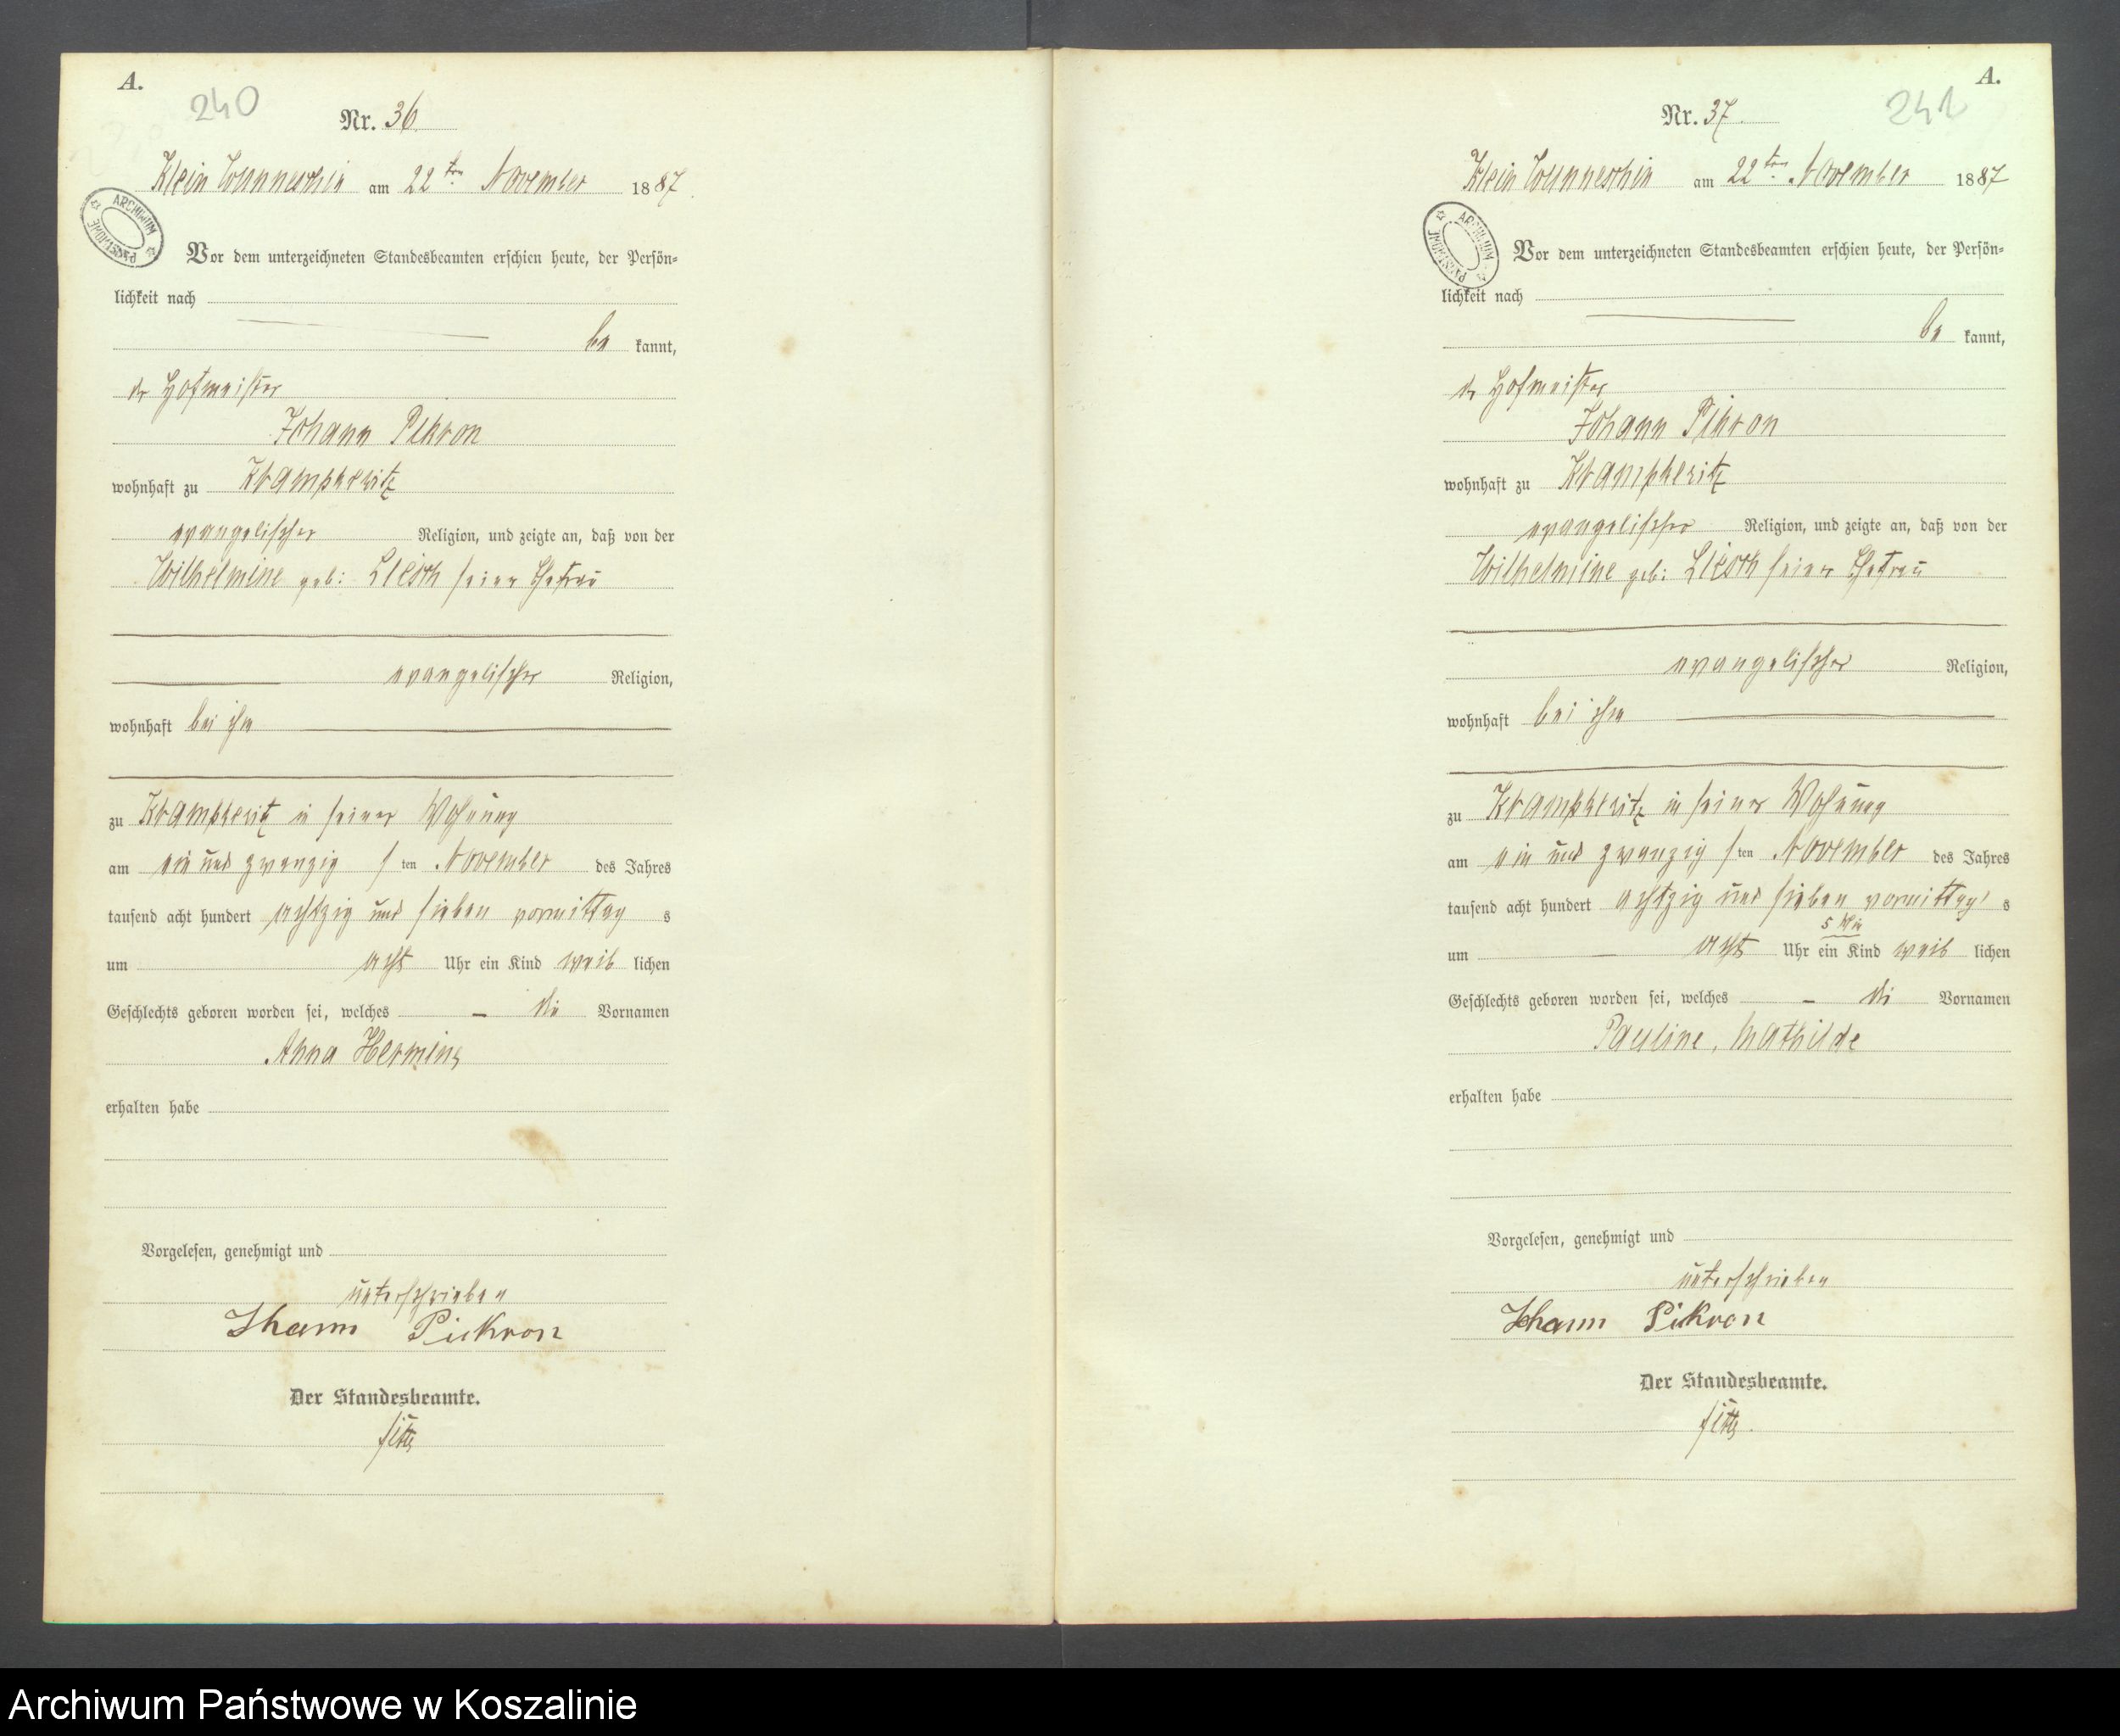 A.
240
Nr. 36.
Klein Wunneschin am 22ten November 1887.
ARCHIWUM PAŃSTWOWE
Vor dem unterzeichneten Standesbeamten erschien heute, der Persön-
lichkeit nach
be kannt,
der Hofmeister
Johann Pikron
wohnhaft zu Krampkewitz
evangelischer Religion, und zeigte an, daß von der
Wilhelmine geb: Liesch seiner Ehefrau
evangelischer Religion,
wohnhaft bei ihm
zu Krampkewitz in seiner Wohnung
am ein und zwanzig sten November des Jahres
tausend acht hundert achtzig und sieben vormittag s
um acht Uhr ein Kind weib lichen
Geschlechts geboren worden sei, welches – die Vornamen
Anna Hermine
erhalten habe
Vorgelesen, genehmigt und
unterschrieben
Johann Pickron
Der Standesbeamte.
A.
241
Nr. 37.
Klein Wunneschin am 22ten November 1887
ARCHIWUM PAŃSTWOWE
Vor dem unterzeichneten Standesbeamten erschien heute, der Persön-
lichkeit nach
be kannt,
der Hofmeister
Johann Pikron
wohnhaft zu Krampkewitz
evangelischer Religion, und zeigte an, daß von der
Wilhelmine geb: Liesch seiner Ehefrau
evangelischer Religion,
wohnhaft bei ihm
zu Krampkewitz in seiner Wohnung
am ein und zwanzig sten November des Jahres
tausend acht hundert achtzig und sieben vormittag s
5 Min
um – acht Uhr ein Kind weib lichen
Geschlechts geboren worden sei, welches – die Vornamen
Pauline, Mathilde
erhalten habe
Vorgelesen, genehmigt und
unterschrieben
Johann Pikron
Der Standesbeamte.
Archiwum Państwowe w Koszalinie